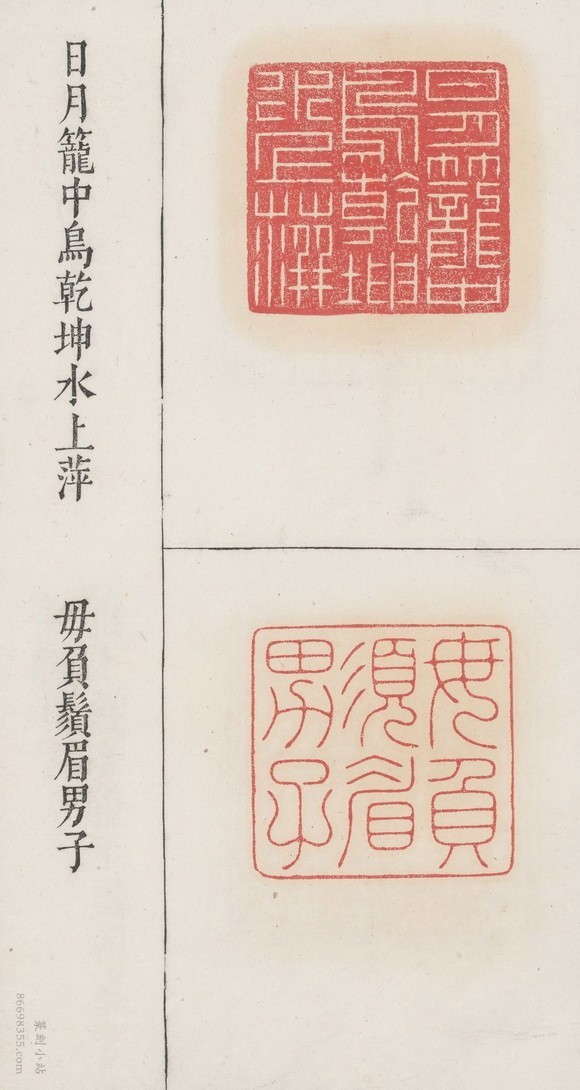 日月籠中鳥乾坤水上萍
毋負鬚眉男子
日月籠中鳥乾坤水上萍
毋負須眉男子
篆刻小站
86698355.com